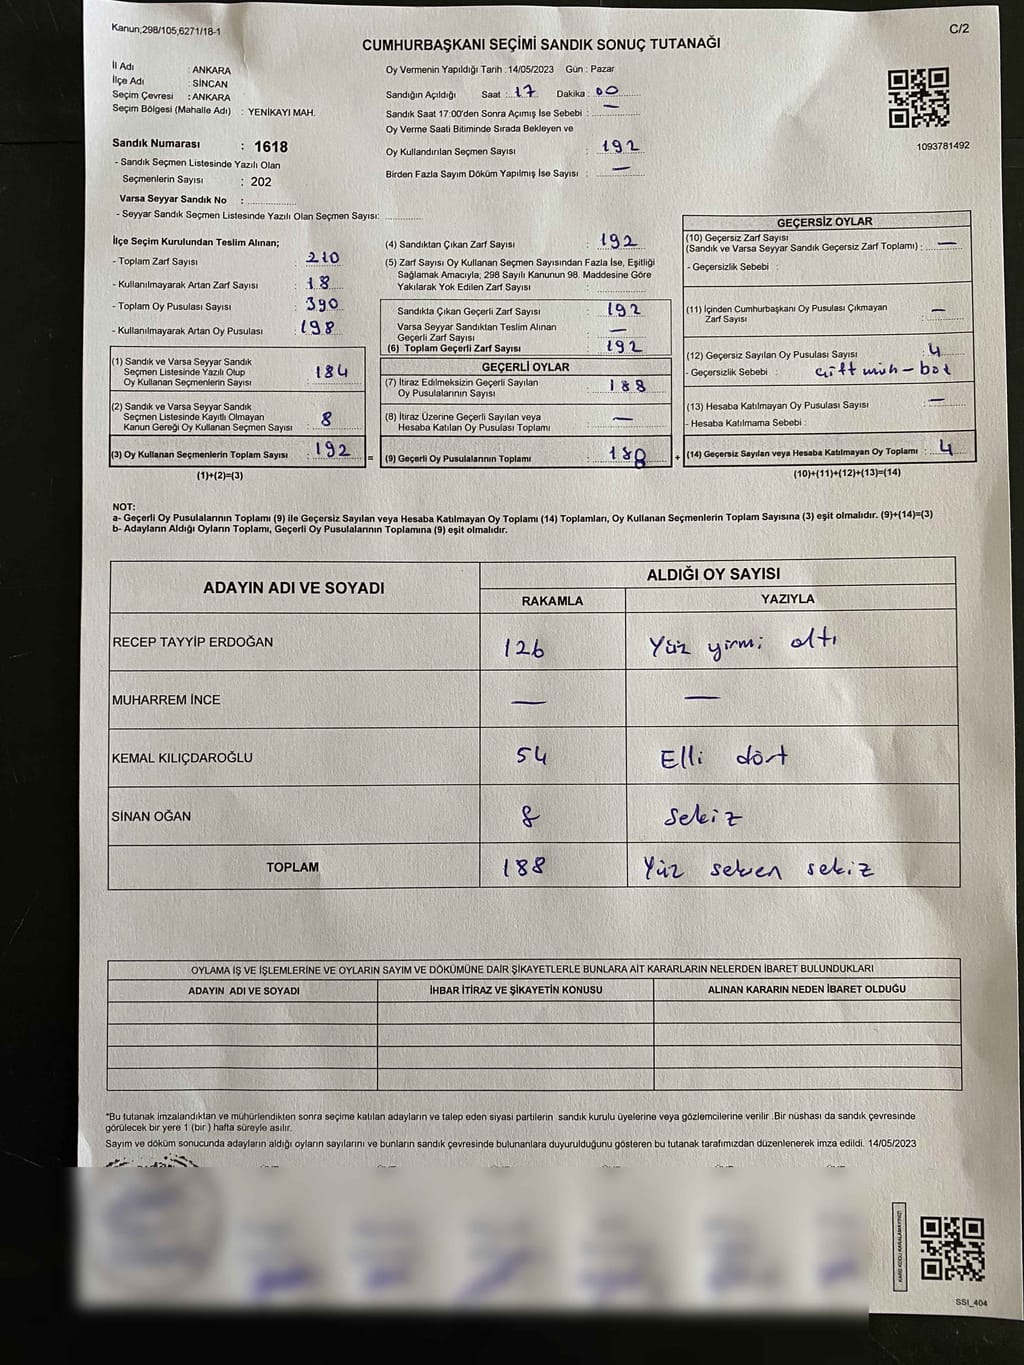 Kanun,298/105,6271/18-1
C/2
CUMHURBAŞKANI SEÇİMİ SANDIK SONUÇ TUTANAĞI
İl Adı : ANKARA
İlçe Adı : SİNCAN
Seçim Çevresi : ANKARA
Seçim Bölgesi (Mahalle Adı) : YENİKAYI MAH.
Sandık Numarası : 1618
- Sandık Seçmen Listesinde Yazılı Olan
Seçmenlerin Sayısı : 202
Varsa Seyyar Sandık No :
- Seyyar Sandık Seçmen Listesinde Yazılı Olan Seçmen Sayısı:
Oy Vermenin Yapıldığı Tarih : 14/05/2023 Gün : Pazar
Sandığın Açıldığı Saat : 17 Dakika : 00
Sandık Saat 17:00'den Sonra Açımış İse Sebebi : —
Oy Verme Saati Bitiminde Sırada Bekleyen ve
Oy Kullandırılan Seçmen Sayısı : 192
Birden Fazla Sayım Döküm Yapılmış İse Sayısı : —
1093781492
İlçe Seçim Kurulundan Teslim Alınan;
- Toplam Zarf Sayısı : 210
- Kullanılmayarak Artan Zarf Sayısı : 18
- Toplam Oy Pusulası Sayısı : 390
- Kullanılmayarak Artan Oy Pusulası : 198
(1) Sandık ve Varsa Seyyar Sandık
Seçmen Listesinde Yazılı Olup
Oy Kullanan Seçmenlerin Sayısı : 184
(2) Sandık ve Varsa Seyyar Sandık
Seçmen Listesinde Kayıtlı Olmayan
Kanun Gereği Oy Kullanan Seçmen Sayısı : 8
(3) Oy Kullanan Seçmenlerin Toplam Sayısı : 192
(1)+(2)=(3)
(4) Sandıktan Çıkan Zarf Sayısı : 192
(5) Zarf Sayısı Oy Kullanan Seçmen Sayısından Fazla İse, Eşitliği
Sağlamak Amacıyla; 298 Sayılı Kanunun 98. Maddesine Göre
Yakılarak Yok Edilen Zarf Sayısı :
Sandıkta Çıkan Geçerli Zarf Sayısı : 192
Varsa Seyyar Sandıktan Teslim Alınan
Geçerli Zarf Sayısı : —
(6) Toplam Geçerli Zarf Sayısı : 192
GEÇERLİ OYLAR
(7) İtiraz Edilmeksizin Geçerli Sayılan
Oy Pusulalarının Sayısı : 188
(8) İtiraz Üzerine Geçerli Sayılan veya
Hesaba Katılan Oy Pusulası Toplamı : —
= (9) Geçerli Oy Pusulalarının Toplamı : 188 +
GEÇERSİZ OYLAR
(10) Geçersiz Zarf Sayısı
(Sandık ve Varsa Seyyar Sandık Geçersiz Zarf Toplamı) : —
- Geçersizlik Sebebi :
(11) İçinden Cumhurbaşkanı Oy Pusulası Çıkmayan
Zarf Sayısı : —
(12) Geçersiz Sayılan Oy Pusulası Sayısı : 4
- Geçersizlik Sebebi : çift müh-
(13) Hesaba Katılmayan Oy Pusulası Sayısı : —
- Hesaba Katılmama Sebebi :
(14) Geçersiz Sayılan veya Hesaba Katılmayan Oy Toplamı : 4
(10)+(11)+(12)+(13)=(14)
NOT:
a- Geçerli Oy Pusulalarının Toplamı (9) ile Geçersiz Sayılan veya Hesaba Katılmayan Oy Toplamı (14) Toplamları, Oy Kullanan Seçmenlerin Toplam Sayısına (3) eşit olmalıdır. (9)+(14)=(3)
b- Adayların Aldığı Oyların Toplamı, Geçerli Oy Pusulalarının Toplamına (9) eşit olmalıdır.
ADAYIN ADI VE SOYADI ALDIĞI OY SAYISI
RAKAMLA YAZIYLA
RECEP TAYYİP ERDOĞAN 126 Yüz yirmi altı
MUHARREM İNCE — —
KEMAL KILIÇDAROĞLU 54 Elli dört
SİNAN OĞAN 8 Sekiz
TOPLAM 188 Yüz seksen sekiz
OYLAMA İŞ VE İŞLEMLERİNE VE OYLARIN SAYIM VE DÖKÜMÜNE DAİR ŞİKAYETLERLE BUNLARA AİT KARARLARIN NELERDEN İBARET BULUNDUKLARI
ADAYIN ADI VE SOYADI İHBAR İTİRAZ VE ŞİKAYETİN KONUSU ALINAN KARARIN NEDEN İBARET OLDUĞU
*Bu tutanak imzalandıktan ve mühürlendikten sonra seçime katılan adayların ve talep eden siyasi partilerin sandık kurulu üyelerine veya gözlemcilerine verilir .Bir nüshası da sandık çevresinde
görülecek bir yere 1 (bir ) hafta süreyle asılır.
Sayım ve döküm sonucunda adayların aldığı oyların sayılarını ve bunların sandık çevresinde bulunanlara duyurulduğunu gösteren bu tutanak tarafımızdan düzenlenerek imza edildi. 14/05/2023
KARE KODU KARALAMAYINIZ!
SSI_404